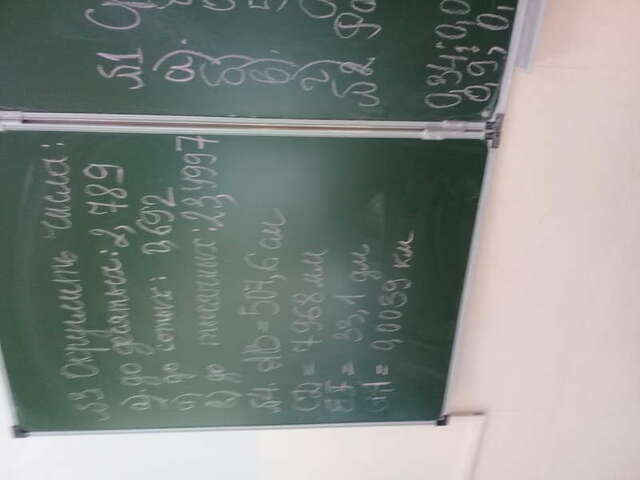 №3 Округлить числа:
а). до десятых: 2,789
б) до сотых: 0,692
в) до тысячных: 23,4997
№4. AB = 507,6 см
CD = 7968 мм
EF = 33,1 дм
= 0,0039 км
№1
а).
б)
в)
г)
№2
0,34; 0,0
0,9; 0,